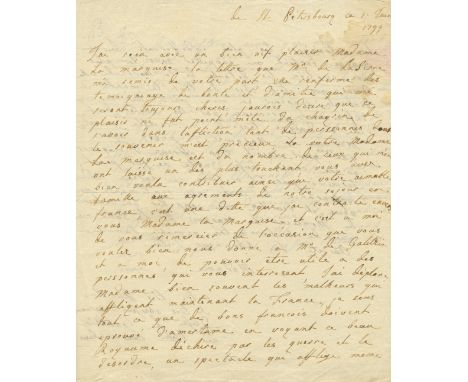 de St. Petersbourg ce
1799
J'ai reçu avec un bien vif plaisir Madame
la marquise la lettre que Mr de
m'a remis de votre part elle renferme des
temoignage de bonté et d'amitié qui me
seront toujours cheres, j'aurois désiré que ce
plaisir ne fut point mêlé du chagrin de
savoir dans laffliction tant de personnes dont
le souvenir m'est précieux la votre Madame
la marquise est du nombre de ceux qui m'en
ont laissé un des plus touchant vous avez
bien voulu contribuer ainsi que votre aimable
famille aux agréments de notre sejour en
france c'est une dette que j'ai contracté envers
vous Madame la Marquise et c'est a moi
de vous remercier de l'occasion que vous
voulez bien nous donné a Mr de Galitz
et a moi, de pouvoir être utile a des
personnes qui vous interessent J'ai déploré
Madame bien souvent les malheurs qui
affligent maintenant la France, je sens
tout ce que de bons francois doivent
eprouvé d'amertume en voyant ce beau
Royaume déchiré par les guerres et le
désordre, un spectacle qui afflige meme